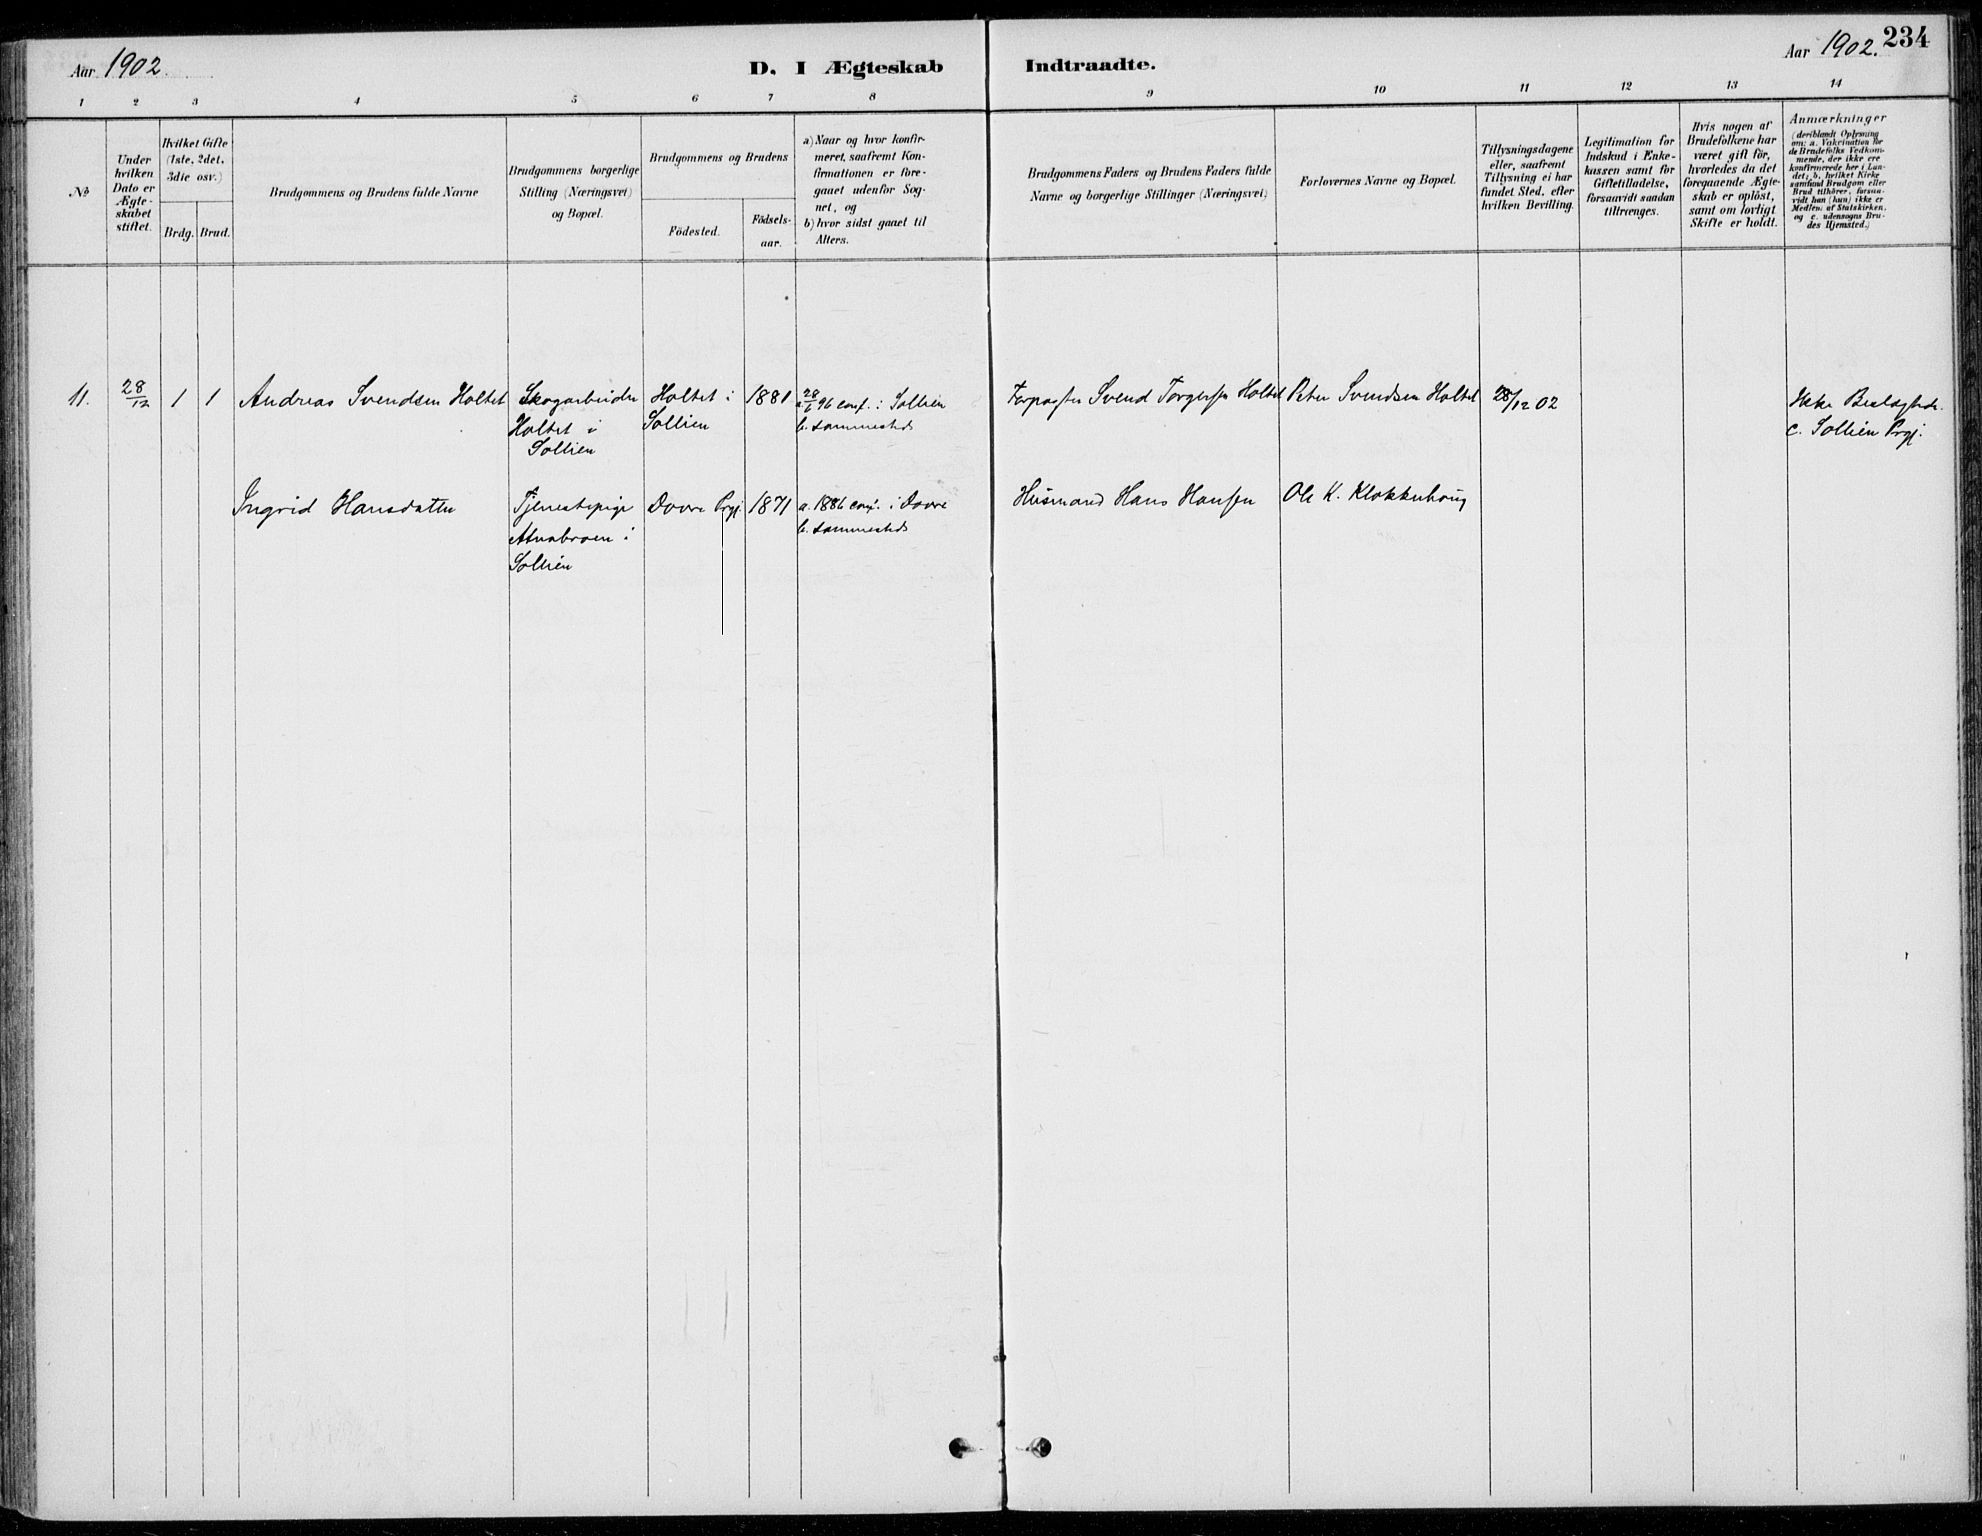 Aar 1902.
D. I Ægteskab
Indtraadte.
Aar 1902. 234
1 2 3 4 5 6 7 8 9 10 11 12 13 14
№
Under
hvilken
Dato er
Ægte-
skabet
stiftet.
Hvilket Gifte
(1ste, 2det,
3die osv.)
Brdg. Brud.
Brudgommens og Brudens fulde Navne
Brudgommens borgerlige
Stilling (Næringsvei)
og Bopæl.
Brudgommens og Brudens
Fødested.
Fødsels-
aar.
a) Naar og hvor konfir-
meret, saafremt Kon-
firmationen er fore-
gaaet udenfor Sog-
net, og
b) hvor sidst gaaet til
Alters.
Brudgommens Faders og Brudens Faders fulde
Navne og borgerlige Stillinger (Næringsvei)
Forlovernes Navne og Bopæl.
Tillysningsdagene
eller, saafremt
Tillysning ei har
fundet Sted, efter
hvilken Bevilling.
Legitimation for
Indskud i Enke-
kassen samt for
Giftetilladelse,
forsaavidt saadan
tiltrænges.
Hvis nogen af
Brudefolkene har
været gift før,
hvorledes da det
foregaaende Ægte-
skab er opløst,
samt om lovligt
Skifte er holdt.
Anmærkninger
(deriblandt Oplysning
om: a. Vakcination for
de Brudefolks Vedkom-
mende, der ikke ere
konfirmerede her i Lan-
det; b. hvilket Kirke-
samfund Brudgom eller
Brud tilhører, forsaa-
vidt han (hun) ikke er
Medlem af Statskirken,
og c. udensogns Bru-
des Hjemsted.)
11. 28/12 1 1 Andreas Svendsen Holtet
Skogarbeider
Holtet i
Sollien
Holtet i
Sollien
1881
a. 28/6 96 conf. i Sollien
b. sammesteds
Forpagter Svend Torgersen Holtet
Peter Svendsen Holtet
28/12 02
Ikke Beslægtede.
c. Sollien Prgj.
Ingrid Hansdatter
Tjenestepige
Atnabroen i
Sollien
Dovre Prgj.
1871
a. 1886 conf. i Dovre
b. sammesteds
Husmand Hans Hansen
Ole K. Klokkerhoug